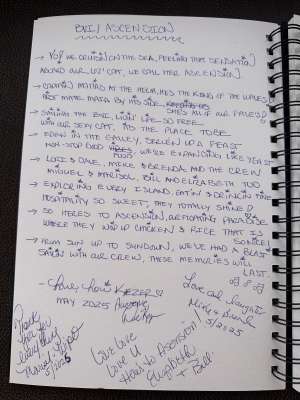 BVI / ASCENSION
→ YO! WE CRUISIN ON THE SEA, FEELING THAT SENSATION
ABOARD OUR LIL' CAT, WE CALL HER ASCENSION
→ CAPTAIN MITAD AT THE HELM, HE'S THE KING OF THE WAVES
FIRST MATE MARIA BY HIS SIDE, SHE'S ALL OUR FAVES
→ SAILING THE BVI, LIVIN' LIFE SO FREE
WITH OUR SEXY CAT, IT'S THE PLACE TO BE
→ EDEN IN THE GALLEY, SERVEN UP A FEAST
NON-STOP GOOD FOOD WE'RE EXPANDING LIKE YEAST
→ LORI & DALE, MIKE & BRENDA AND THE CREW
MIGUEL & MARISOL, BILL AND ELIZABETH TOO
→ EXPLORING EVERY ISLAND, EATIN & DRINKIN FINE
HOSPITALITY SO SWEET, THEY TOTALLY SHINED
→ SO HERES TO ASCENSION, A FLOATING PARADISE
WHERE THEY WHIP UP CHICKEN & RICE THAT IS
SO NICE
→ FROM SUN UP TO SUNDOWN, WE'VE HAD A BLAST
SAILIN WITH OUR CREW, THESE MEMORIES WILL
LAST
MAY 2025
Love and laughter
Mike & Brenda
5/2025
Thank you
for
5/2025
Love Love
Love U
Thanks to Ascension!
Elizabeth
+ Bill